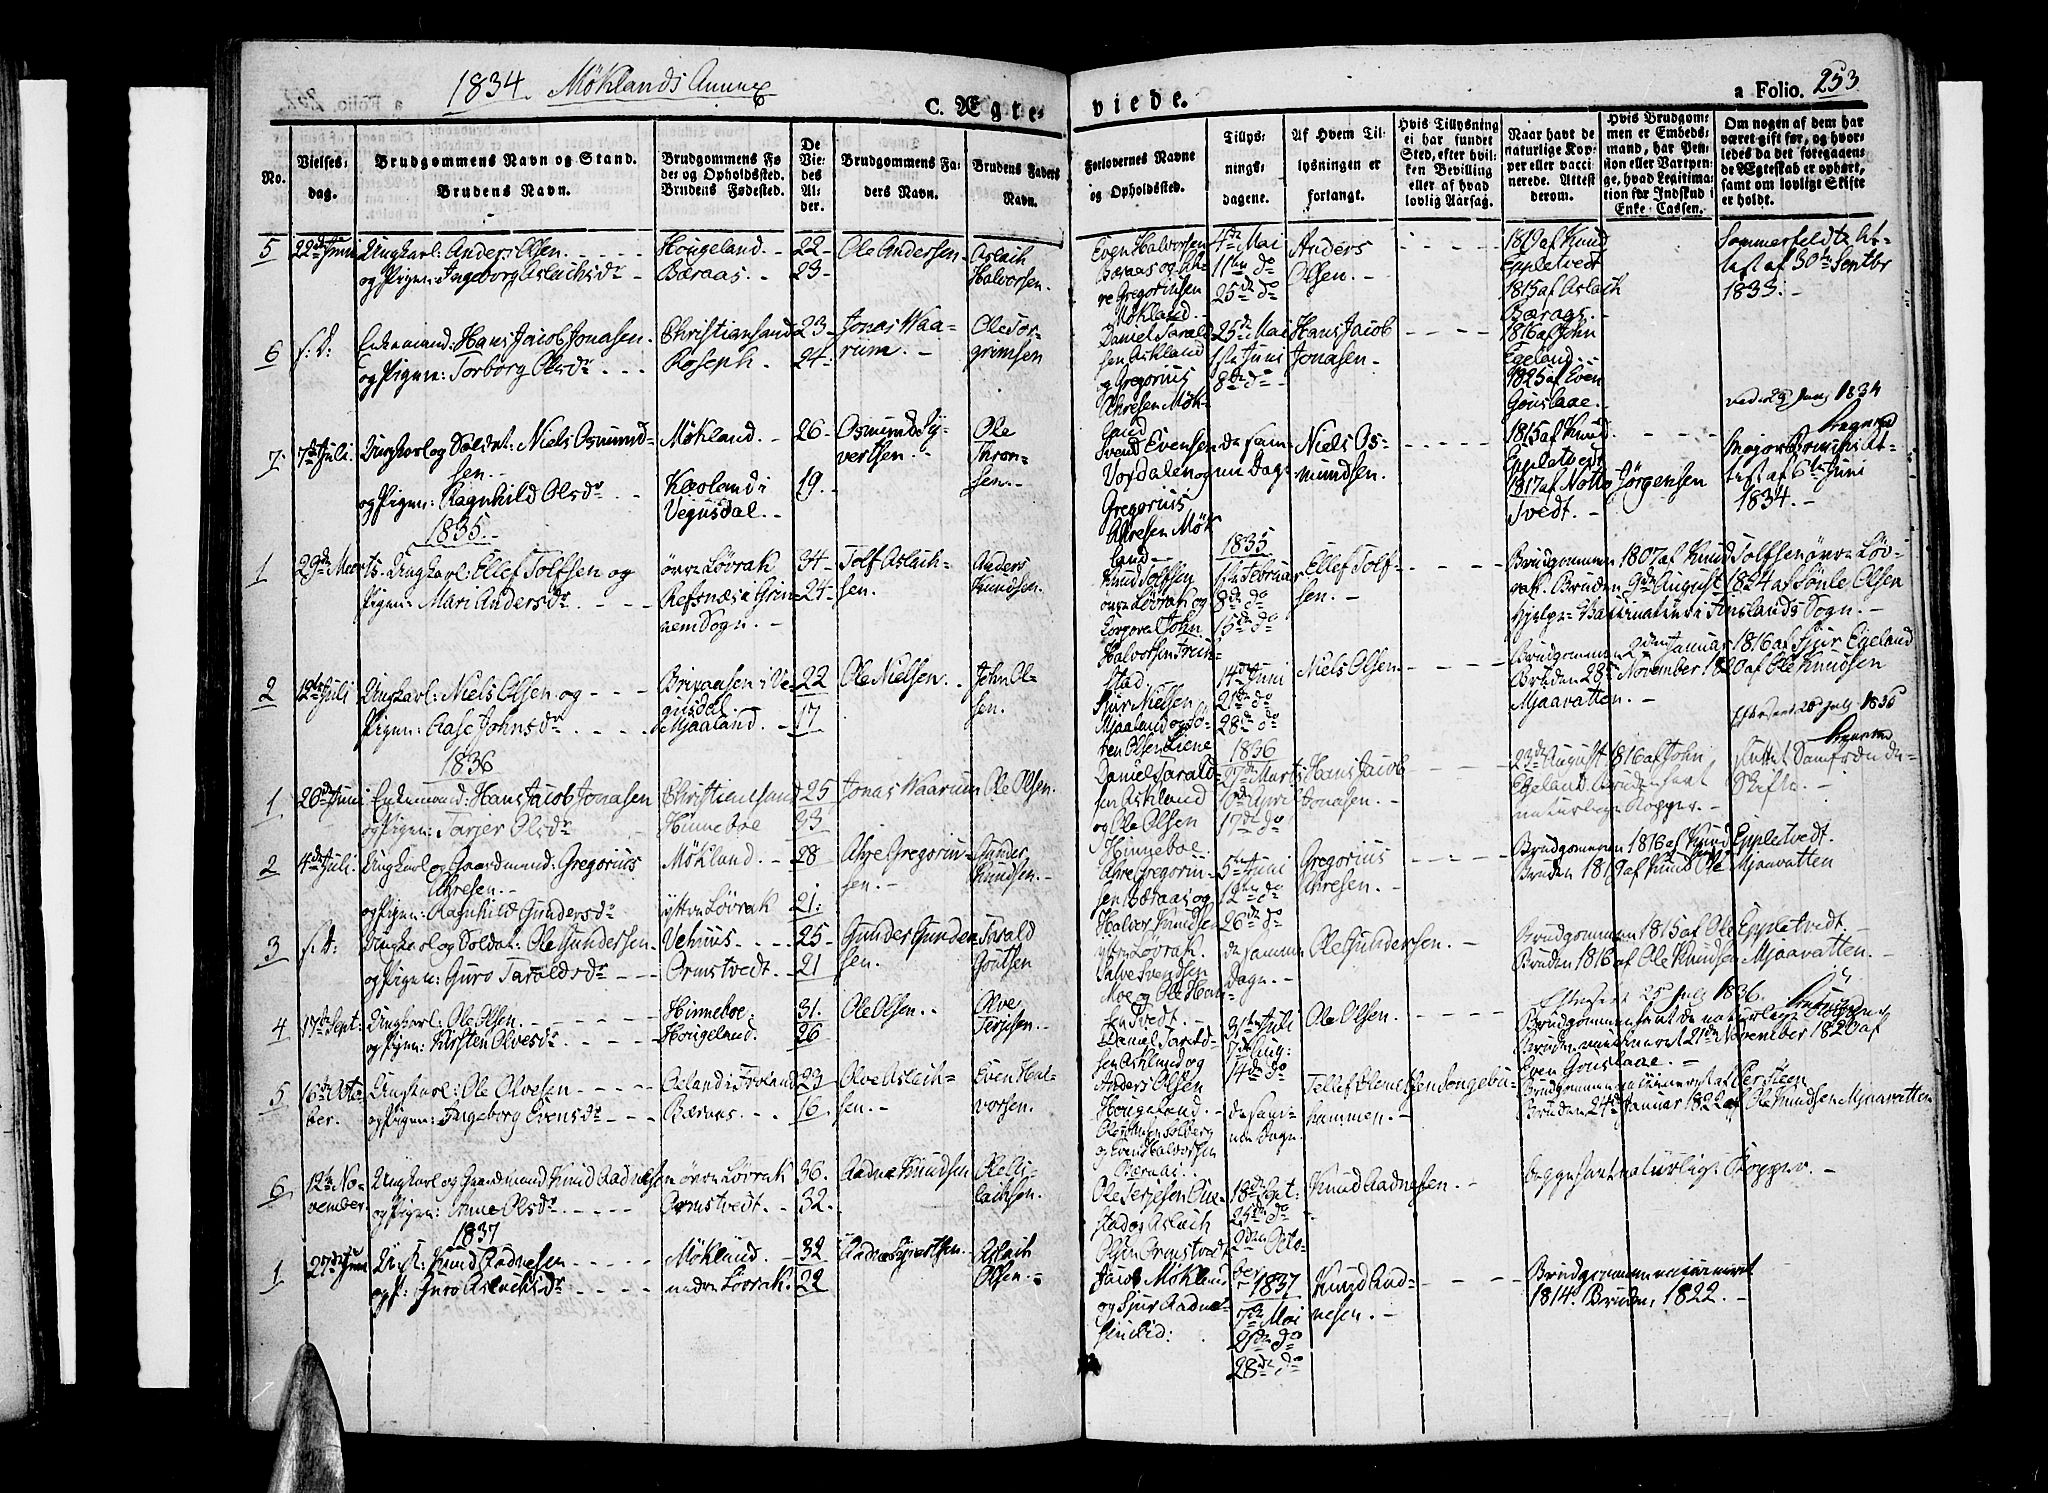 1834. Møklands Annex
C. Ægte-
viede.
a Folio. 253
No.
Vielses-
dag.
Brudgommens Navn og Stand.
Brudens Navn.
Brudgommens Fø-
de- og Opholdssted.
Brudens Fødested.
De
Vie-
des
Al-
der.
Brudgommens Fa-
ders Navn.
Brudens Faders
Navn.
Forlovernes Navne
og Opholdssted.
Tillys-
nings-
dagene.
Af Hvem Til-
lysningen er
forlangt.
Hvis Tillysning
ei har fundet
Sted, efter hvil-
ken Bevilling
eller af hvad
lovlig Aarsag.
Naar havt de
naturlige Kop-
per eller vacci-
nerede. Attest
derom.
Hvis Brudgom-
men er Embeds-
mand, har Pen-
sion eller Vartpen-
ge, hvad Legitima-
tion for Indskud i
Enke-Cassen.
Om nogen af dem har
været gift før, og hvor-
ledes da det foregaaen-
de Ægteskab er ophørt,
samt om lovligt Skifte
er holdt.
5
22de Juni
Ungkarl: Anders Olsen.
og Pigen: Ingeborg Aslachsdr
Hougeland.
Bæraas.
22
23
Ole Andersen
Aslach
Halvorsen.
Even Halvorsen
Bæraas og Ah-
re Gregoriusen
Møkland.
4de Mai
11te do
25de do
Anders
Olsen.
1819 af Knud
Eppletvedt
1815 af Aslach
Bæraas.
Sommerfeldts At-
test af 30te Septbr
1833.
6
s: D:
Enkemand: Hans Jacob Jonasen.
og Pigen: Torborg Olsdr
Christiansand
Roseph.
23
24
Jonas Waa-
rum.
Ole Tor-
grimsen
Daniel Tarald-
sen Askland
og Gregorius
Ahresen Møk-
land
25de Mai
1ste Juni
8de do
Hans Jacob
Jonasen.
1816 af John
Egeland.
1825 af Even
Gouslaae.
7
7de Juli.
Ungkarl og Soldat: Niels Osmund-
sen.
og Pigen: Ragnhild Olsdr
Møkland.
Kaoland i
Vegusdal.
26
19.
Osmund Sy-
vertsen.
Ole
Thron-
sen.
Svend Evensen
Vosdalen og
Gregorius
Ahresen Møk-
land
de sam-
me Dage
Niels Os-
mundsen.
1815 af Knud
Eppletvedt
1817 af Notto Jörgensen
Tvedt.
test af 6te Juni
1834.
1835.
1
29de Marts
Ungkarl: Ellef Tolfsen og
Pigen: Mari Andersdr
øvre Løvrak
Refsnæs i Grin-
nem Sogn.
34
24
Tolf Aslach-
sen.
Anders
Knudsen.
Knud Tolfsen
øvre Løvrak og
John
Halvorsen
1835
1ste Februar
8de do
15de do
Ellef Tolf-
sen.
Brudgommen 1807 af Knud Tolfsen øvre Løv-
rak. Bruden 9de August 1824 af Olsen
Hjelpe-Vaccinateur i Sogn.
2
12te Juli
Ungkarl: Niels Olsen og
Pigen: Aase Johnsdr
i Ve-
gusdal
Mjaaland.
22
17
Ole Nielsen.
John Ol-
sen.
Nielsen
Mjaaland og
Olsen Liene
14de Juni
21de do
28de do
Niels Olsen
Brudgommen 2den Januar 1816 af Sjur Egeland
Bruden 28de November 1820 af Ole Knudsen
Mjaavatten.
1836
1
26de Juni
Enkemand: Hans Jacob Jonasen
og Pigen: Tarjer Olsdr
Christiansand
Hinneboe
25
33
Jonas Waarum
Ole Olsen.
Daniel Tarald-
sen Askland
og Ole Olsen
Hinneboe.
1836
27de Marts
10de April
17de do
Hans Jacob
Jonasen.
23de August 1816 af John
Egeland. Bruden havt
naturlige Kopper.
Skifte.
2
4de Juli.
Ungkarl og Gaardmand: Gregorius
Ahresen.
og Pigen: Ragnhild Gundersdr
Møkland.
yttre Løvrak
28
21.
Ahre Gregoriu-
sen.
Gunder
Knudsen.
Ahre Gregoriu-
sen Bæraas og
Halvor Knudsen
yttre Løvrak.
5te Juni
12te do
26de do
Gregorius
Ahresen.
Brudgommen 1816 af Knud Eppletvedt.
Bruden 1819 af Ole Mjaavatten
3
s: D:
Ungkarl og Soldat: Ole Gundersen.
og Pigen: Guro Taraldsdr
Vehuus.
Ormstvedt.
25
21
Gunder Gunder-
sen.
Tarald
Goutsen
Salve Svendsen
Moe og Ole Han-
sen Tvedt.
de samme
Dage.
Ole Gundersen.
Brudgommen 1815 af Ole Eppletvedt.
Bruden 1816 af Ole Knudsen Mjaavatten.
Efterseet 25de Juli 1836.
4
17de Sept:
Ungkarl: Ole Olsen.
og Pigen: Kirsten Olvesdr
Hinneboe.
Hougeland.
31.
26
Ole Olsen.
Olve
Terjesen.
Daniel Tarald-
sen Askland og
Anders Olsen
Hougeland.
31te Juli
7de Aug:
14de do
Ole Olsen.
Brudgommen havt de naturlige Kopper
Bruden vaccineret 21de November 1820 af
Even Gouslaae.
5
16de Octo-
ber.
Ungkarl: Ole Olvesen
og Pigen: Ingeborg Evensdr
Oeland i Froland
Bæraas.
23
16
Olve Aslach-
sen.
Even Hal-
vorsen.
og Even Halvorsen
Bæraas.
de sam-
me Dage.
Brudgommen vaccineret af
Bruden 24de Januar 1822 af Ole Knudsen Mjaavatten
6
12te No-
vember.
Ungkarl og Gaardmand Knud Aadnesen
og Pigen: Anne Olsdr
øvre Løvrak
Ormstvedt.
36.
32.
Aadne Knudsen
Ole As-
lachsen.
Ole Terjesen
og Aslach
Olsen Ormstvedt
18de Sept:
25de do
2den Octo-
ber
Knud Aadnesen.
begge havt naturlige Kopper.
1837
1
27de Juni
U: K: Knud Aadnesen
og P: Guro Aslachsdr
Møkland.
nedre Løvrak.
32
22
Aadne Syvertsen.
Aslach
Olsen.
Jacob Møkland
og Sjur Aadne-
sen ibid:
1837
7de Mai
21de do
28de do
Knud Aad-
nesen.
Brudgommen vaccineret
1814. Bruden 1822.